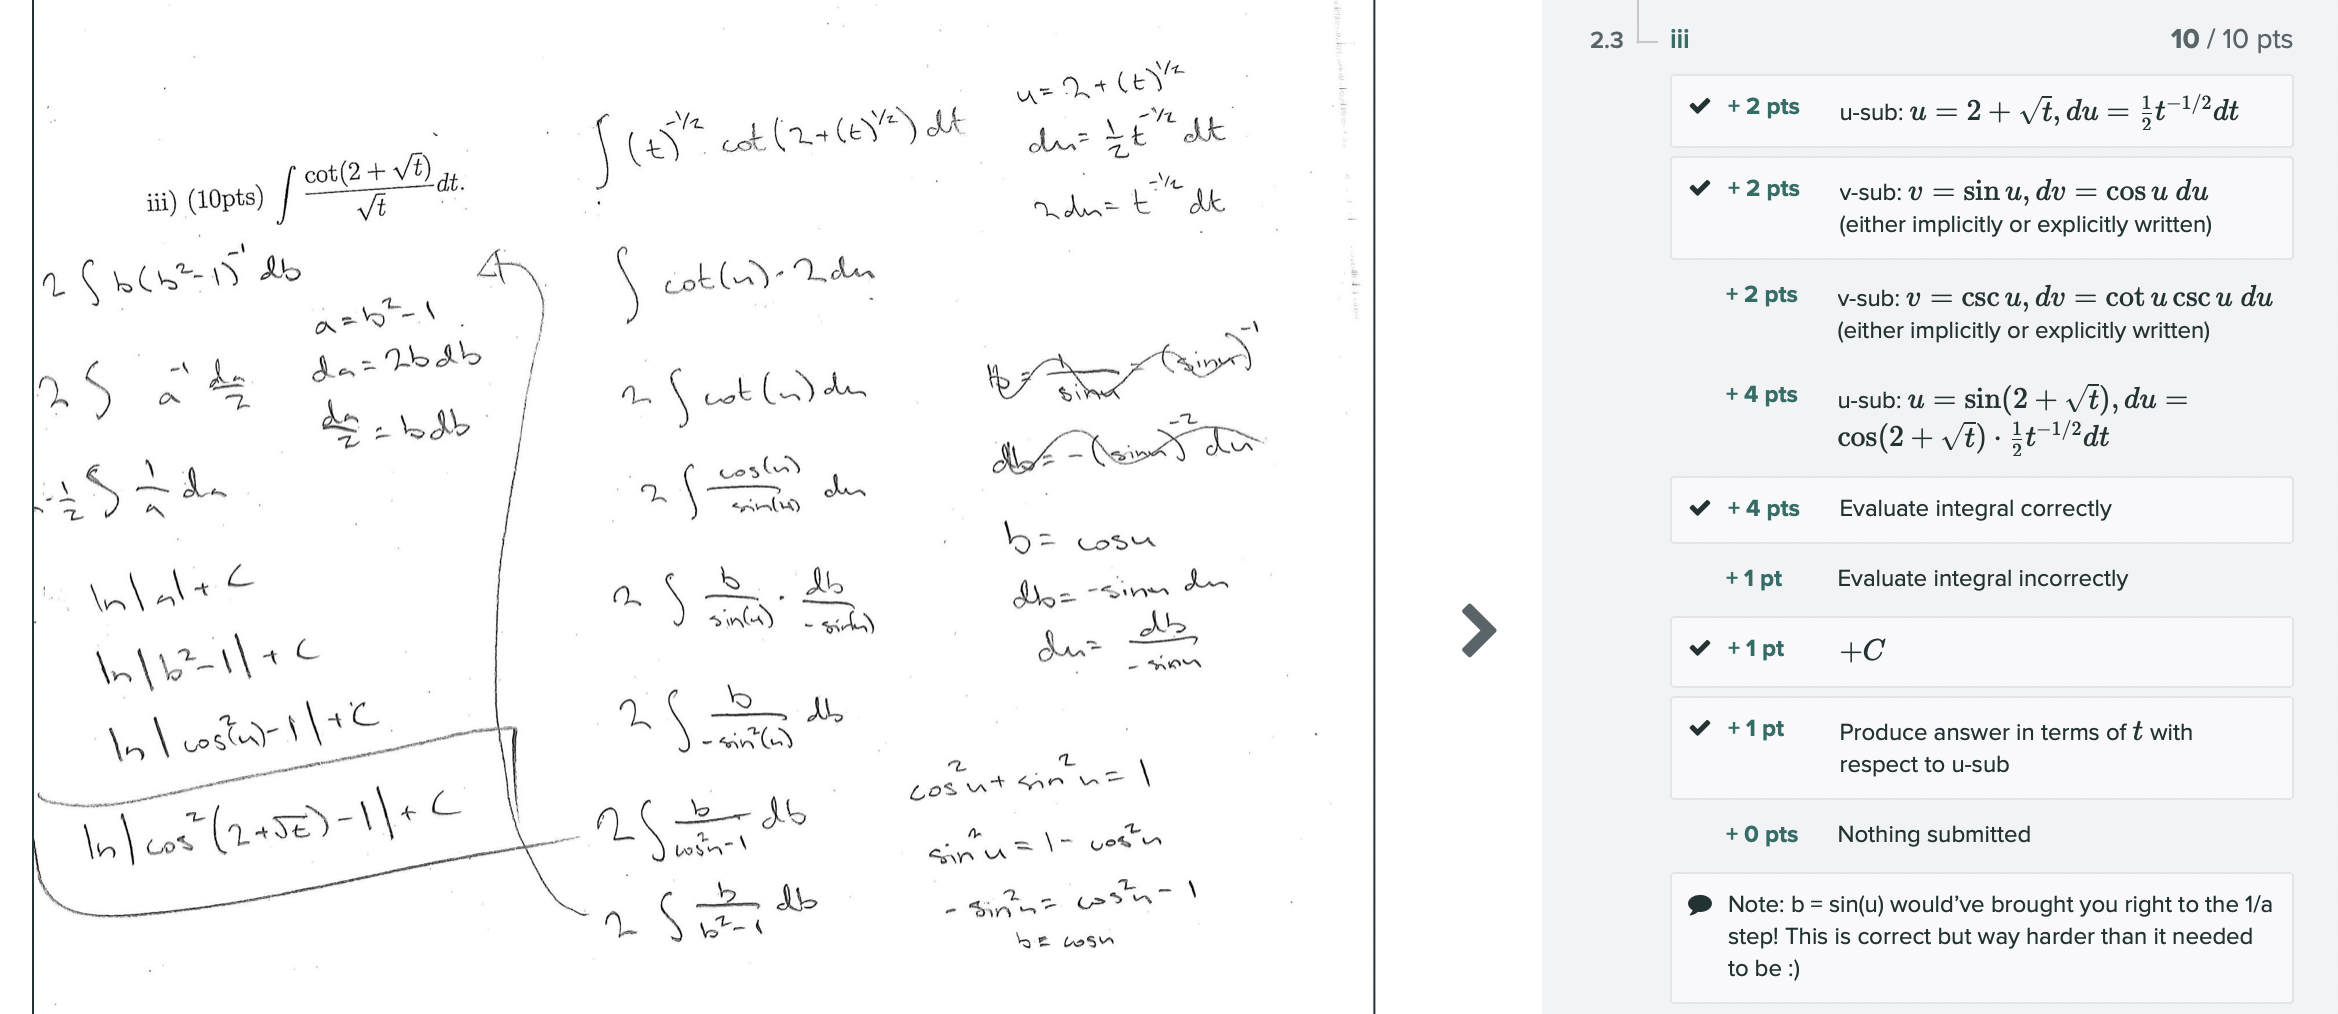 iii) (10pts) ∫ cot(2 + √t)/√t dt.
∫ (t)^-1/2 cot(2+(t)^1/2) dt
u = 2 + (t)^1/2
du = 1/2 t^-1/2 dt
2du = t^-1/2 dt
∫ cot(u) · 2du
2 ∫ cot(u) du
2 ∫ cos(u)/sin(u) du
db = -(sinu)^-2 du
b = cosu
db = -sinu du
du = db/-sinu
2 ∫ b/sin(u) · db/-sin(u)
2 ∫ b/-sin²(u) db
cos²u + sin²u = 1
sin²u = 1 - cos²u
-sin²u = cos²u - 1
b = cosu
2 ∫ b/cos²u-1 db
2 ∫ b/b²-1 db
2 ∫ b(b²-1)^-1 db
a = b²-1
da = 2b db
da/2 = b db
2 ∫ a^-1 da/2
1/2 ∫ 1/a da
ln|a| + C
ln|b²-1| + C
ln|cos²(u)-1| + C
ln|cos²(2+√t)-1| + C
2.3 iii 10 / 10 pts
+ 2 pts u-sub: u = 2 + √t, du = ½t^−1/2 dt
+ 2 pts v-sub: v = sin u, dv = cos u du
(either implicitly or explicitly written)
+ 2 pts v-sub: v = csc u, dv = cot u csc u du
(either implicitly or explicitly written)
+ 4 pts u-sub: u = sin(2 + √t), du =
cos(2 + √t) · ½t^−1/2 dt
+ 4 pts Evaluate integral correctly
+ 1 pt Evaluate integral incorrectly
+ 1 pt +C
+ 1 pt Produce answer in terms of t with
respect to u-sub
+ 0 pts Nothing submitted
Note: b = sin(u) would've brought you right to the 1/a
step! This is correct but way harder than it needed
to be :)